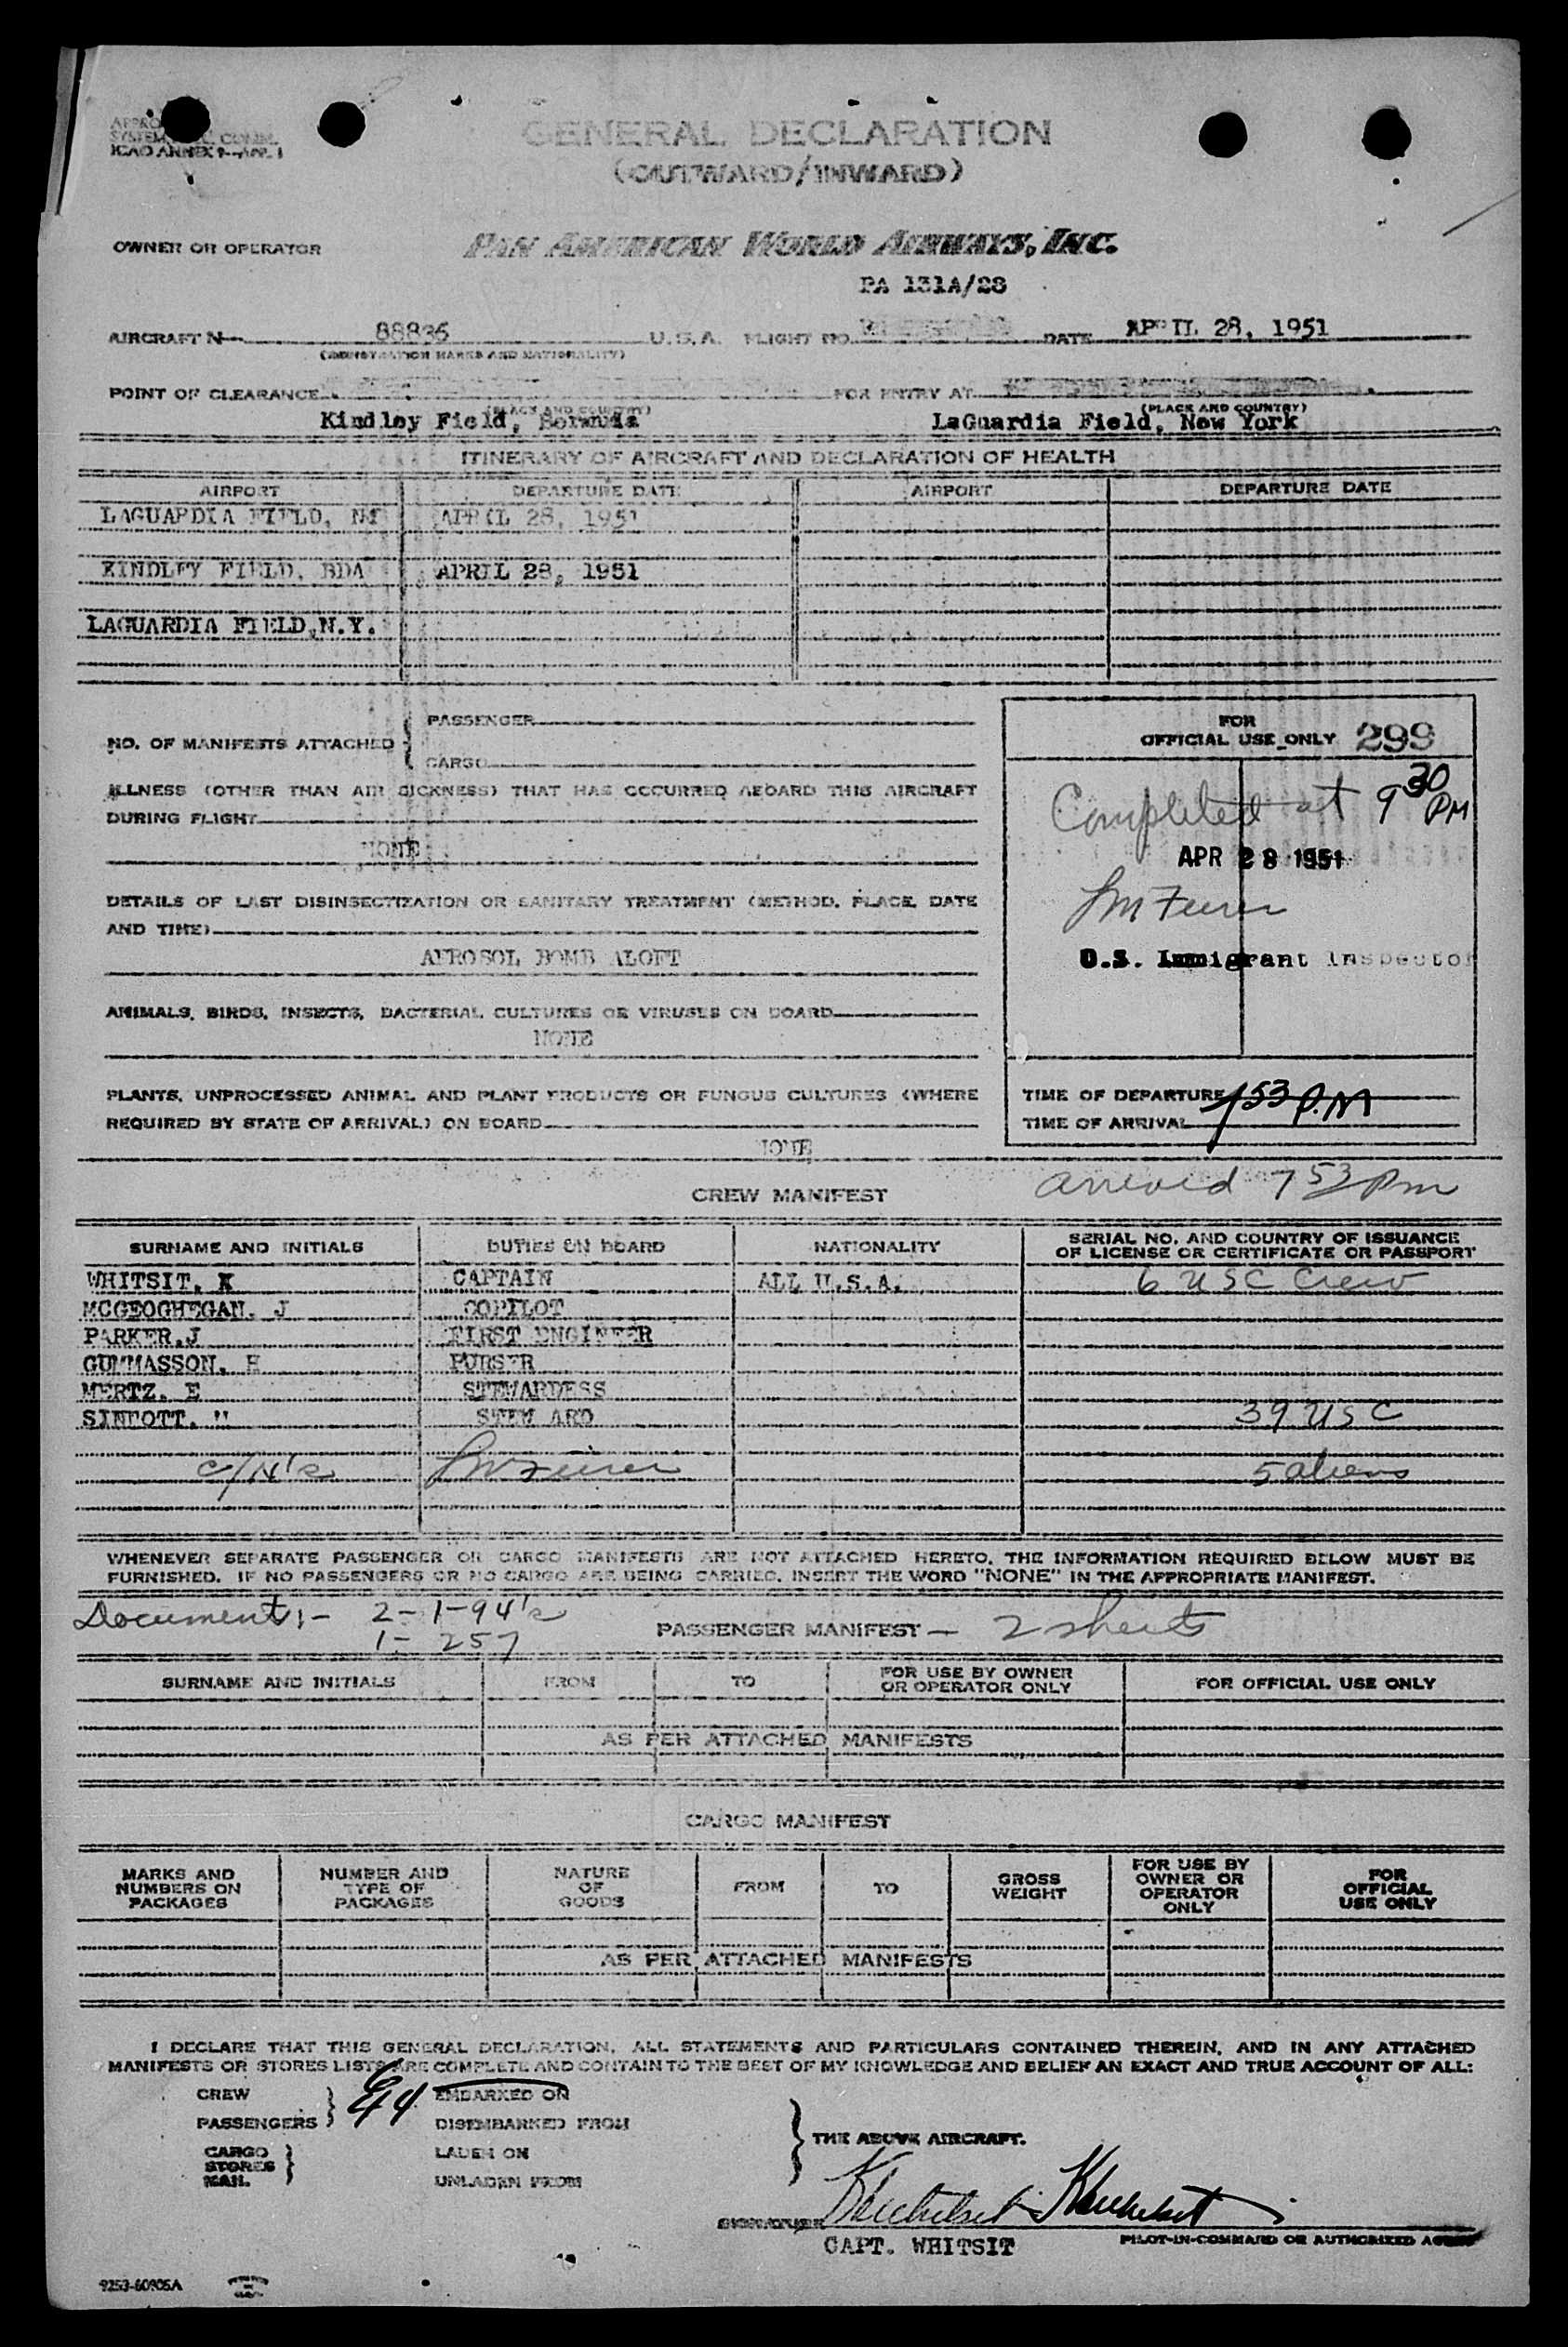 GENERAL DECLARATION
(OUTWARD/INWARD)
ICAO ANNEX 9-APP. 1
OWNER OR OPERATOR PAN AMERICAN WORLD AIRWAYS, INC.
PA 131A/28
AIRCRAFT N 88836 U.S.A. FLIGHT NO. DATE APRIL 28, 1951
(REGISTRATION MARKS AND NATIONALITY)
POINT OF CLEARANCE FOR ENTRY AT
(PLACE AND COUNTRY) (PLACE AND COUNTRY)
Kindley Field, Bermuda LaGuardia Field, New York
ITINERARY OF AIRCRAFT AND DECLARATION OF HEALTH
AIRPORT DEPARTURE DATE AIRPORT DEPARTURE DATE
LAGUARDIA FIELD, NY APRIL 28, 1951
KINDLEY FIELD, BDA APRIL 28, 1951
LAGUARDIA FIELD,N.Y.
NO. OF MANIFESTS ATTACHED { PASSENGER
CARGO
ILLNESS (OTHER THAN AIR SICKNESS) THAT HAS OCCURRED ABOARD THIS AIRCRAFT
DURING FLIGHT
NONE
DETAILS OF LAST DISINSECTIZATION OR SANITARY TREATMENT (METHOD, PLACE, DATE
AND TIME)
AEROSOL BOMB ALOFT
ANIMALS, BIRDS, INSECTS, BACTERIAL CULTURES OR VIRUSES ON BOARD
NONE
PLANTS, UNPROCESSED ANIMAL AND PLANT PRODUCTS OR FUNGUS CULTURES (WHERE
REQUIRED BY STATE OF ARRIVAL) ON BOARD
NONE
FOR
OFFICIAL USE ONLY 299
Completed at 9 30 PM
APR 28 1951
U.S. Immigrant Inspector
TIME OF DEPARTURE
TIME OF ARRIVAL 7 53 P.M
arrived 7 53 Pm
CREW MANIFEST
SURNAME AND INITIALS DUTIES ON BOARD NATIONALITY SERIAL NO. AND COUNTRY OF ISSUANCE
OF LICENSE OR CERTIFICATE OR PASSPORT
WHITSIT, K CAPTAIN ALL U.S.A. 6 USC Crew
MCGEOGHEGAN, J COPILOT
PARKER,J FIRST ENGINEER
GUMMASSON, H PURSER
MERTZ, E STEWARDESS
SINNOTT, STEWARD 39 USC
5 aliens
WHENEVER SEPARATE PASSENGER OR CARGO MANIFESTS ARE NOT ATTACHED HERETO, THE INFORMATION REQUIRED BELOW MUST BE
FURNISHED. IF NO PASSENGERS OR NO CARGO ARE BEING CARRIED, INSERT THE WORD "NONE" IN THE APPROPRIATE MANIFEST.
Document:- 2-1-94's
1- 257
PASSENGER MANIFEST - 2 sheets
SURNAME AND INITIALS FROM TO FOR USE BY OWNER
OR OPERATOR ONLY FOR OFFICIAL USE ONLY
AS PER ATTACHED MANIFESTS
CARGO MANIFEST
MARKS AND
NUMBERS ON
PACKAGES NUMBER AND
TYPE OF
PACKAGES NATURE
OF
GOODS FROM TO GROSS
WEIGHT FOR USE BY
OWNER OR
OPERATOR
ONLY FOR
OFFICIAL
USE ONLY
AS PER ATTACHED MANIFESTS
I DECLARE THAT THIS GENERAL DECLARATION, ALL STATEMENTS AND PARTICULARS CONTAINED THEREIN, AND IN ANY ATTACHED
MANIFESTS OR STORES LISTS ARE COMPLETE AND CONTAIN TO THE BEST OF MY KNOWLEDGE AND BELIEF AN EXACT AND TRUE ACCOUNT OF ALL:
CREW EMBARKED ON
PASSENGERS } 44 DISEMBARKED FROM
CARGO
STORES
MAIL } LADEN ON
UNLADEN FROM
} THE ABOVE AIRCRAFT.
SIGNATURE
CAPT. WHITSIT PILOT-IN-COMMAND OR AUTHORIZED AGENT
9253-60905A